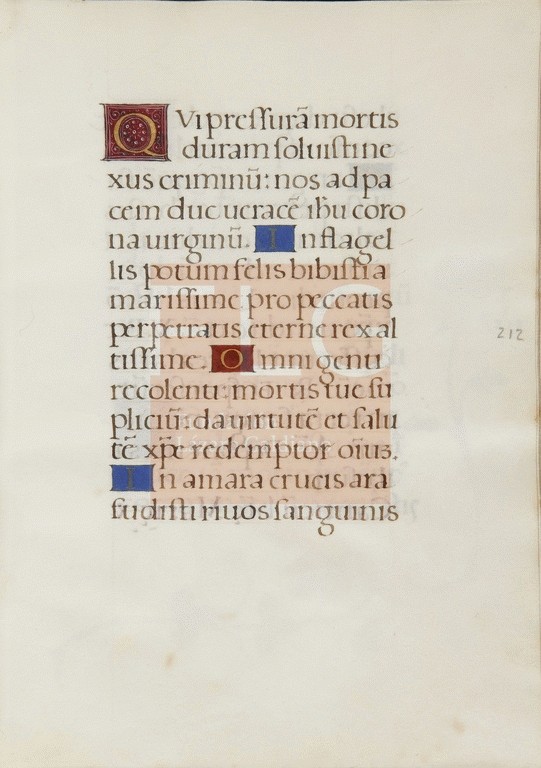 QVi pressurā mortis
duram soluisti ne
xus criminū: nos ad pa
cem duc ueracē ihu coro
na uirginū. In flagel
lis potum felis bibisti a
marissime pro peccatis
perpetratis eterne rex al
tissime. Omni genti
recolenti mortis tue su
pliciū: da uirtutē et salu
tē xpe redemptor oius.
In amara crucis ara
fudisti riuos sanguinis
212
FLG